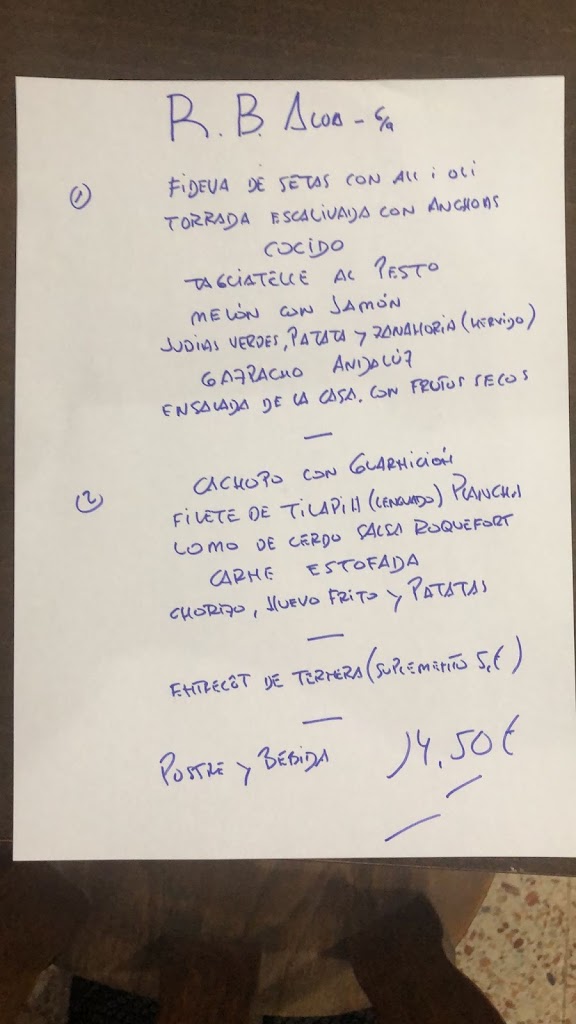 R. B. ALOA - C/A
①
FIDEUA DE SETAS CON ALL i OLI
TORRADA ESCALIVADA CON ANCHOAS
COCIDO
TAGLIATELLE AL PESTO
MELÓN CON JAMÓN
JUDIAS VERDES, PATATA Y ZANAHORIA (HERVIDO)
GAZPACHO ANDALUZ
ENSALADA DE LA CASA. CON FRUTOS SECOS
②
CACHOPO CON GUARNICIÓN
FILETE DE TILAPIA (LENGUADO) PLANCHA
LOMO DE CERDO SALSA ROQUEFORT
CARNE ESTOFADA
CHORIZO, HUEVO FRITO Y PATATAS
ENTRECOT DE TERNERA (SUPLEMENTO 5,€)
POSTRE Y BEBIDA 14.50€